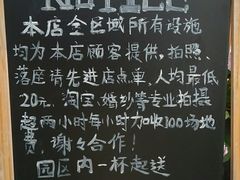 NOTICE
本店全区域所有设施
均为本店顾客提供，拍照、
落座请先进店点单，人均最低
20元。淘宝、婚纱等专业拍摄
超两小时每小时加收100场地
费，谢谢合作！
园区内一杯起送